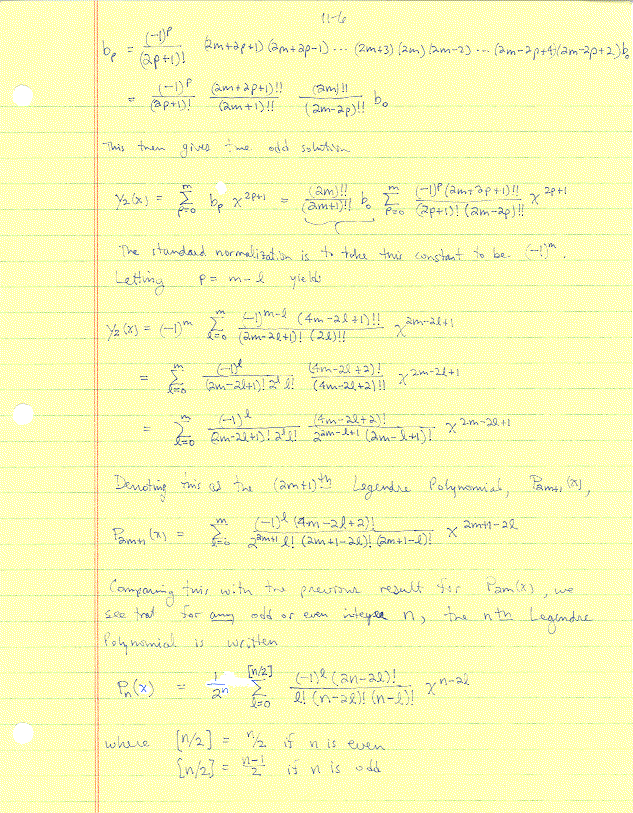 11-6
b_p = (-1)^p / (2p+1)! (2m+2p+1)(2m+2p-1) ... (2m+3)(2m)(2m-2) ... (2m-2p+4)(2m-2p+2) b_0
= (-1)^p / (2p+1)! (2m+2p+1)!! / (2m+1)!! (2m)!! / (2m-2p)!! b_0
This then gives the odd solution
y_2(x) = Σ_{p=0}^{m} b_p x^{2p+1} = (2m)!! / (2m+1)!! b_0 Σ_{p=0}^{m} (-1)^p (2m+2p+1)!! / (2p+1)! (2m-2p)!! x^{2p+1}
The standard normalization is to take this constant to be (-1)^m.
Letting p = m-l yields
y_2(x) = (-1)^m Σ_{l=0}^{m} (-1)^{m-l} (4m-2l+1)!! / (2m-2l+1)! (2l)!! x^{2m-2l+1}
= Σ_{l=0}^{m} (-1)^l / (2m-2l+1)! 2^l l! (4m-2l+2)! / (4m-2l+2)!! x^{2m-2l+1}
= Σ_{l=0}^{m} (-1)^l / (2m-2l+1)! 2^l l! (4m-2l+2)! / 2^{2m-l+1} (2m-l+1)! x^{2m-2l+1}
Denoting this as the (2m+1)th Legendre Polynomial, P_{2m+1}(x),
P_{2m+1}(x) = Σ_{l=0}^{m} (-1)^l (4m-2l+2)! / 2^{2m+1} l! (2m+1-2l)! (2m+1-l)! x^{2m+1-2l}
Comparing this with the previous result for P_{2m}(x), we
see that for any odd or even integer n, the nth Legendre
Polynomial is written
P_n(x) = 1 / 2^n Σ_{l=0}^{[n/2]} (-1)^l (2n-2l)! / l! (n-2l)! (n-l)! x^{n-2l}
where [n/2] = n/2 if n is even
[n/2] = n-1 / 2 if n is odd